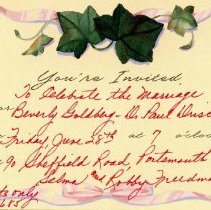 You're Invited
To Celebrate the Marriage
Beverly Goldberg - D. Paul Drisc
Friday, June 28th at 7 o'clo
90 Sheffield Road Portsmouth
Selma and Robby Freedm
only